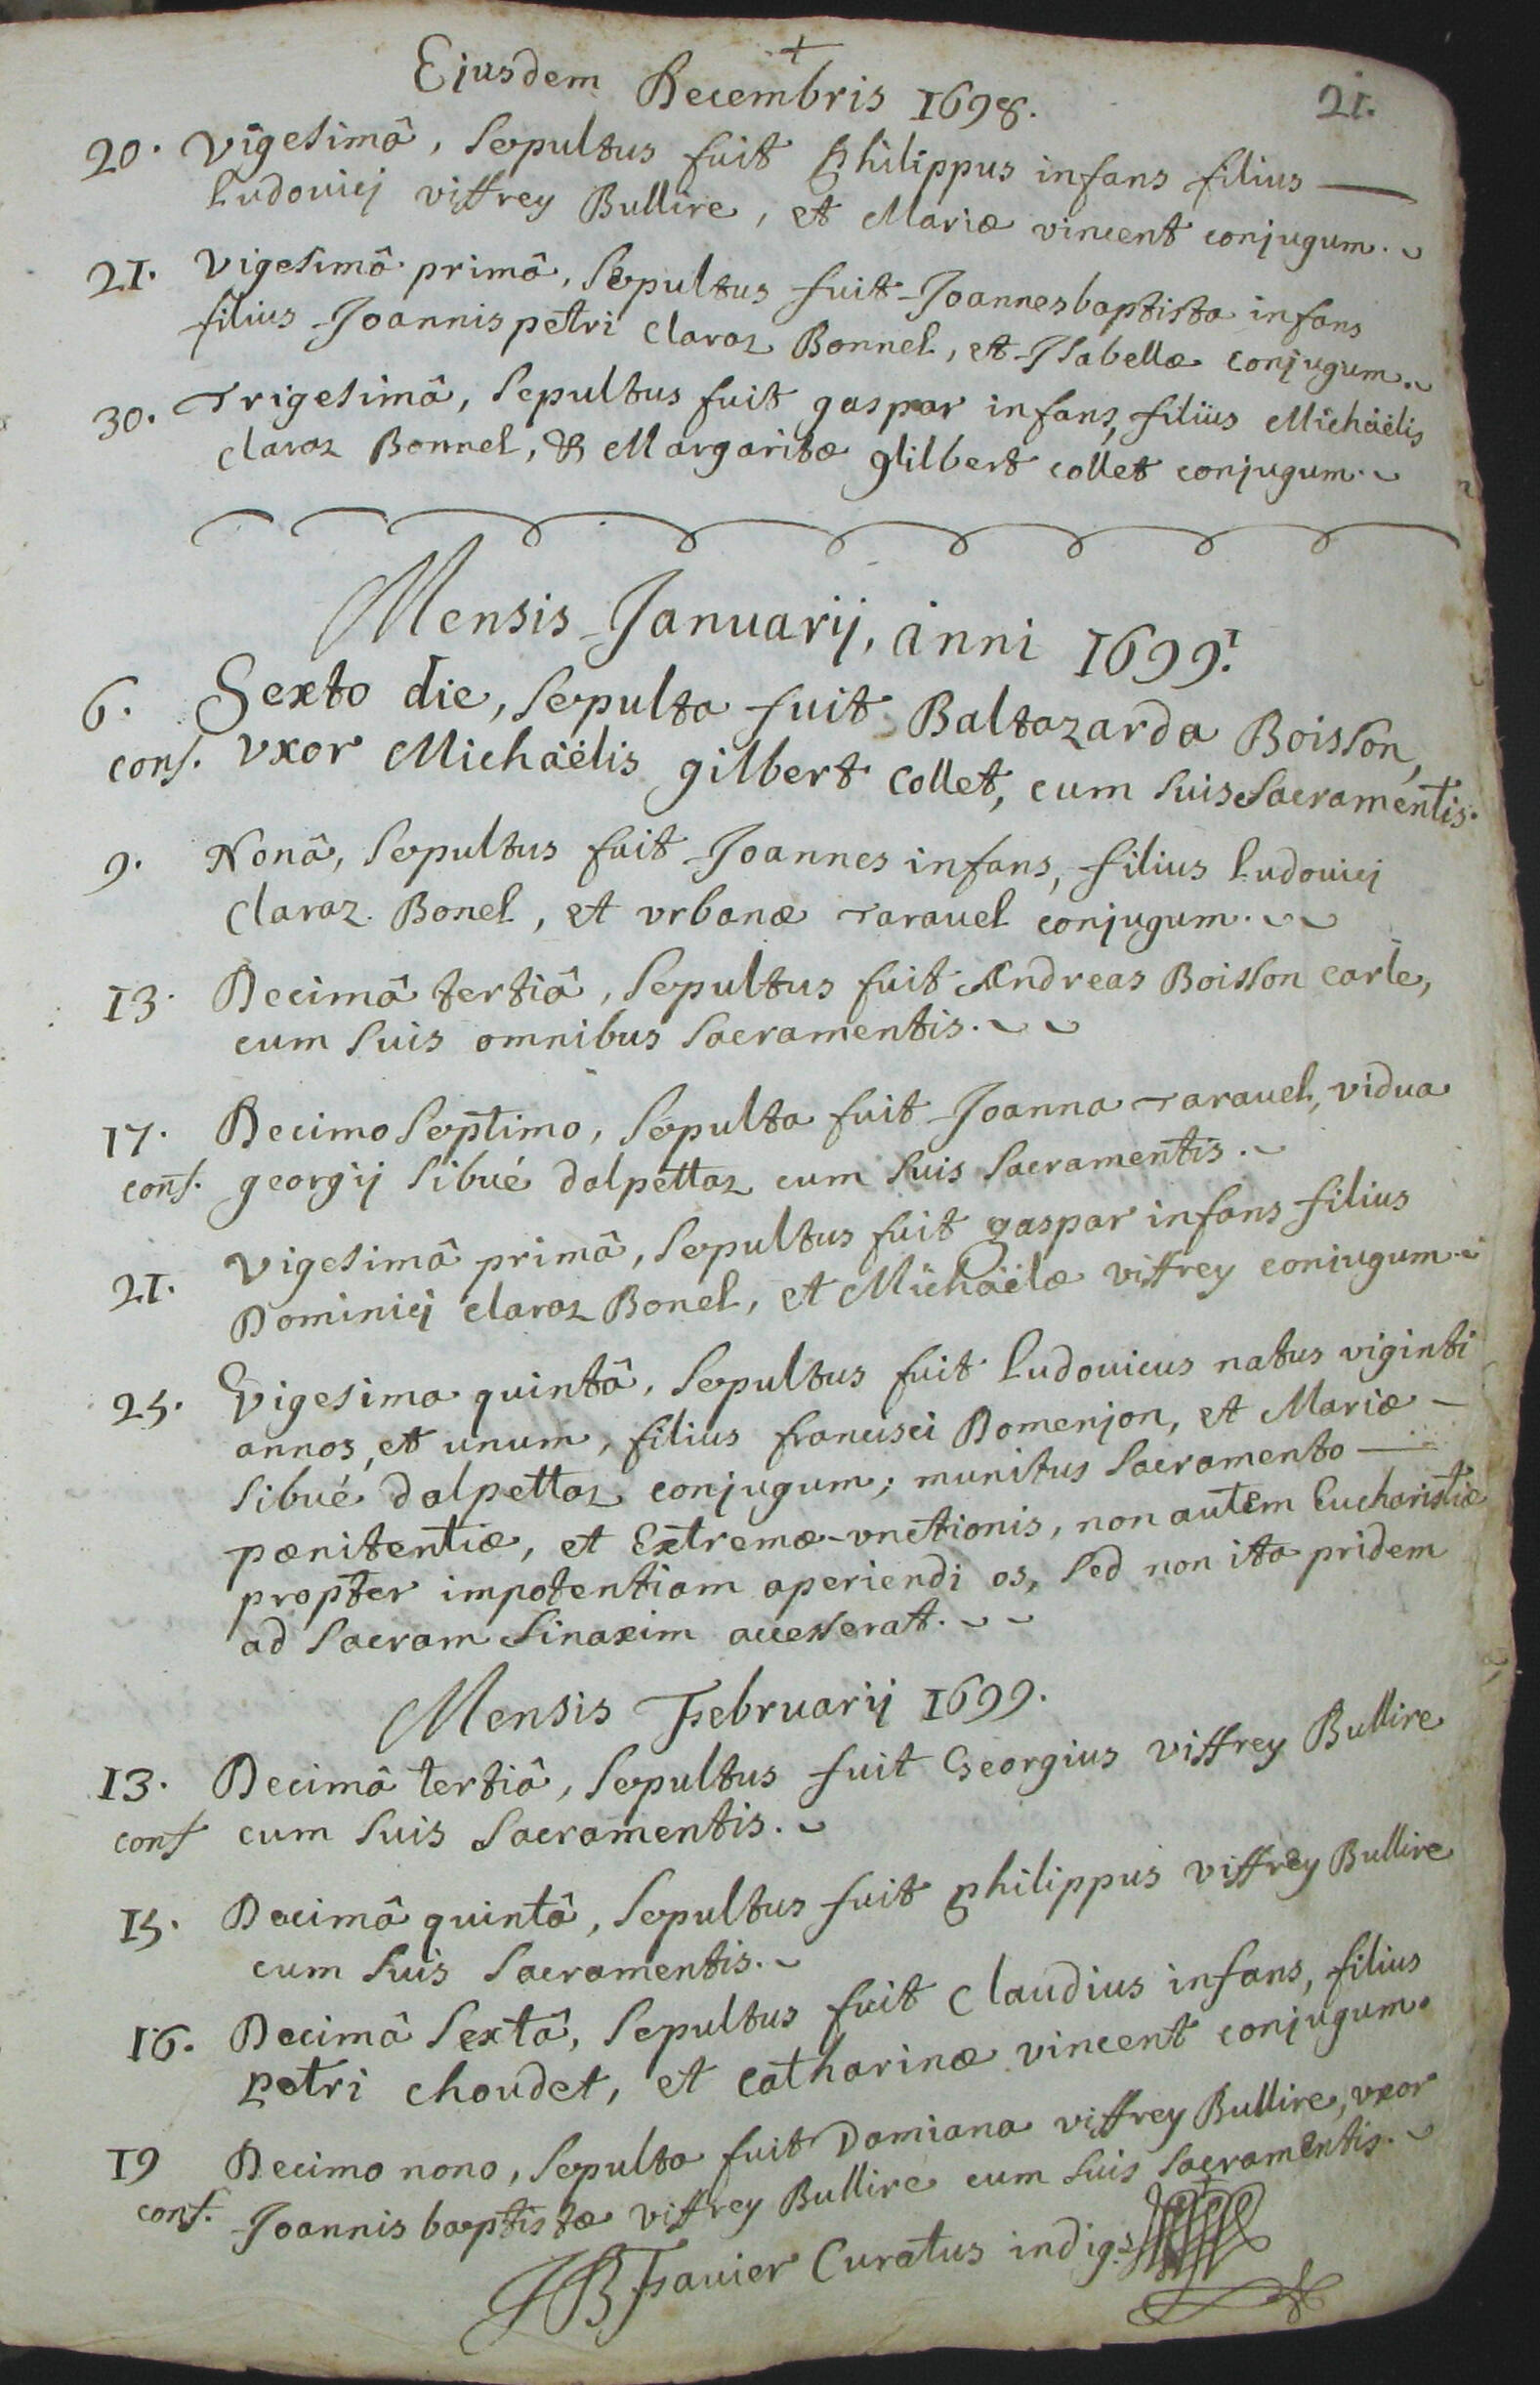 +
Ejusdem Decembris 1698. 21.
20. Vigesimâ, Sepultus fuit Philippus infans filius —
Ludovicj viffrey Bullire, et Mariæ vincent conjugum.
21. Vigesimâ primâ, Sepultus fuit Joannesbaptista infans
filius Joannispetri Claraz Bonnel, et Isabellæ conjugum.
30. Trigesimâ, Sepultus fuit gaspar infans, filius Michäelis
Claraz Bonnel, & Margaritæ gilbert collet conjugum.
Mensis Januarij, anni 1699.
6. Sexto die, Sepulta fuit Baltazarda Boisson,
conf. vxor Michäelis gilbert Collet, cum suis Sacramentis.
9. Nonâ, Sepultus fuit Joannes infans, filius Ludouicj
Claraz Bonel, et vrbanæ Tarauel conjugum.
13. Decimâ tertiâ, Sepultus fuit Andreas Boisson carle,
cum suis omnibus Sacramentis.
17. Decimo Septimo, Sepulta fuit Joanna Tarauel, vidua
conf. georgij Sibué dalpettaz cum suis Sacramentis.
21. Vigesimâ primâ, Sepultus fuit gaspar infans filius
Dominicj claraz Bonel, et Michäelæ viffrey coniugum.
25. Vigesima quintâ, Sepultus fuit Ludouicus natus viginti
annos, et unum, filius francisci Domenjon, et Mariæ —
Sibué dalpettaz conjugum; munitus Sacramento —
pænitentiæ, et Extremæ-vnctionis, non autem Eucharistiæ
propter impotentiam aperiendi os, Sed non ita pridem
ad Sacram Sinaxim accesserat.
Mensis Februarij 1699.
13. Decimâ tertiâ, Sepultus fuit Georgius viffrey Bullire
conf cum suis Sacramentis.
15. Decimâ quintâ, Sepultus fuit philippus viffrey Bullire
cum suis Sacramentis.
16. Decimâ Sextâ, Sepultus fuit Claudius infans, filius
petri choudet, et catharinæ vincent conjugum.
19 Decimo nono, Sepulta fuit Damiana viffrey Bullire, vxor
conf. Joannis baptistæ viffrey Bullire cum suis Sacramentis.
JB Fauier Curatus indig.s